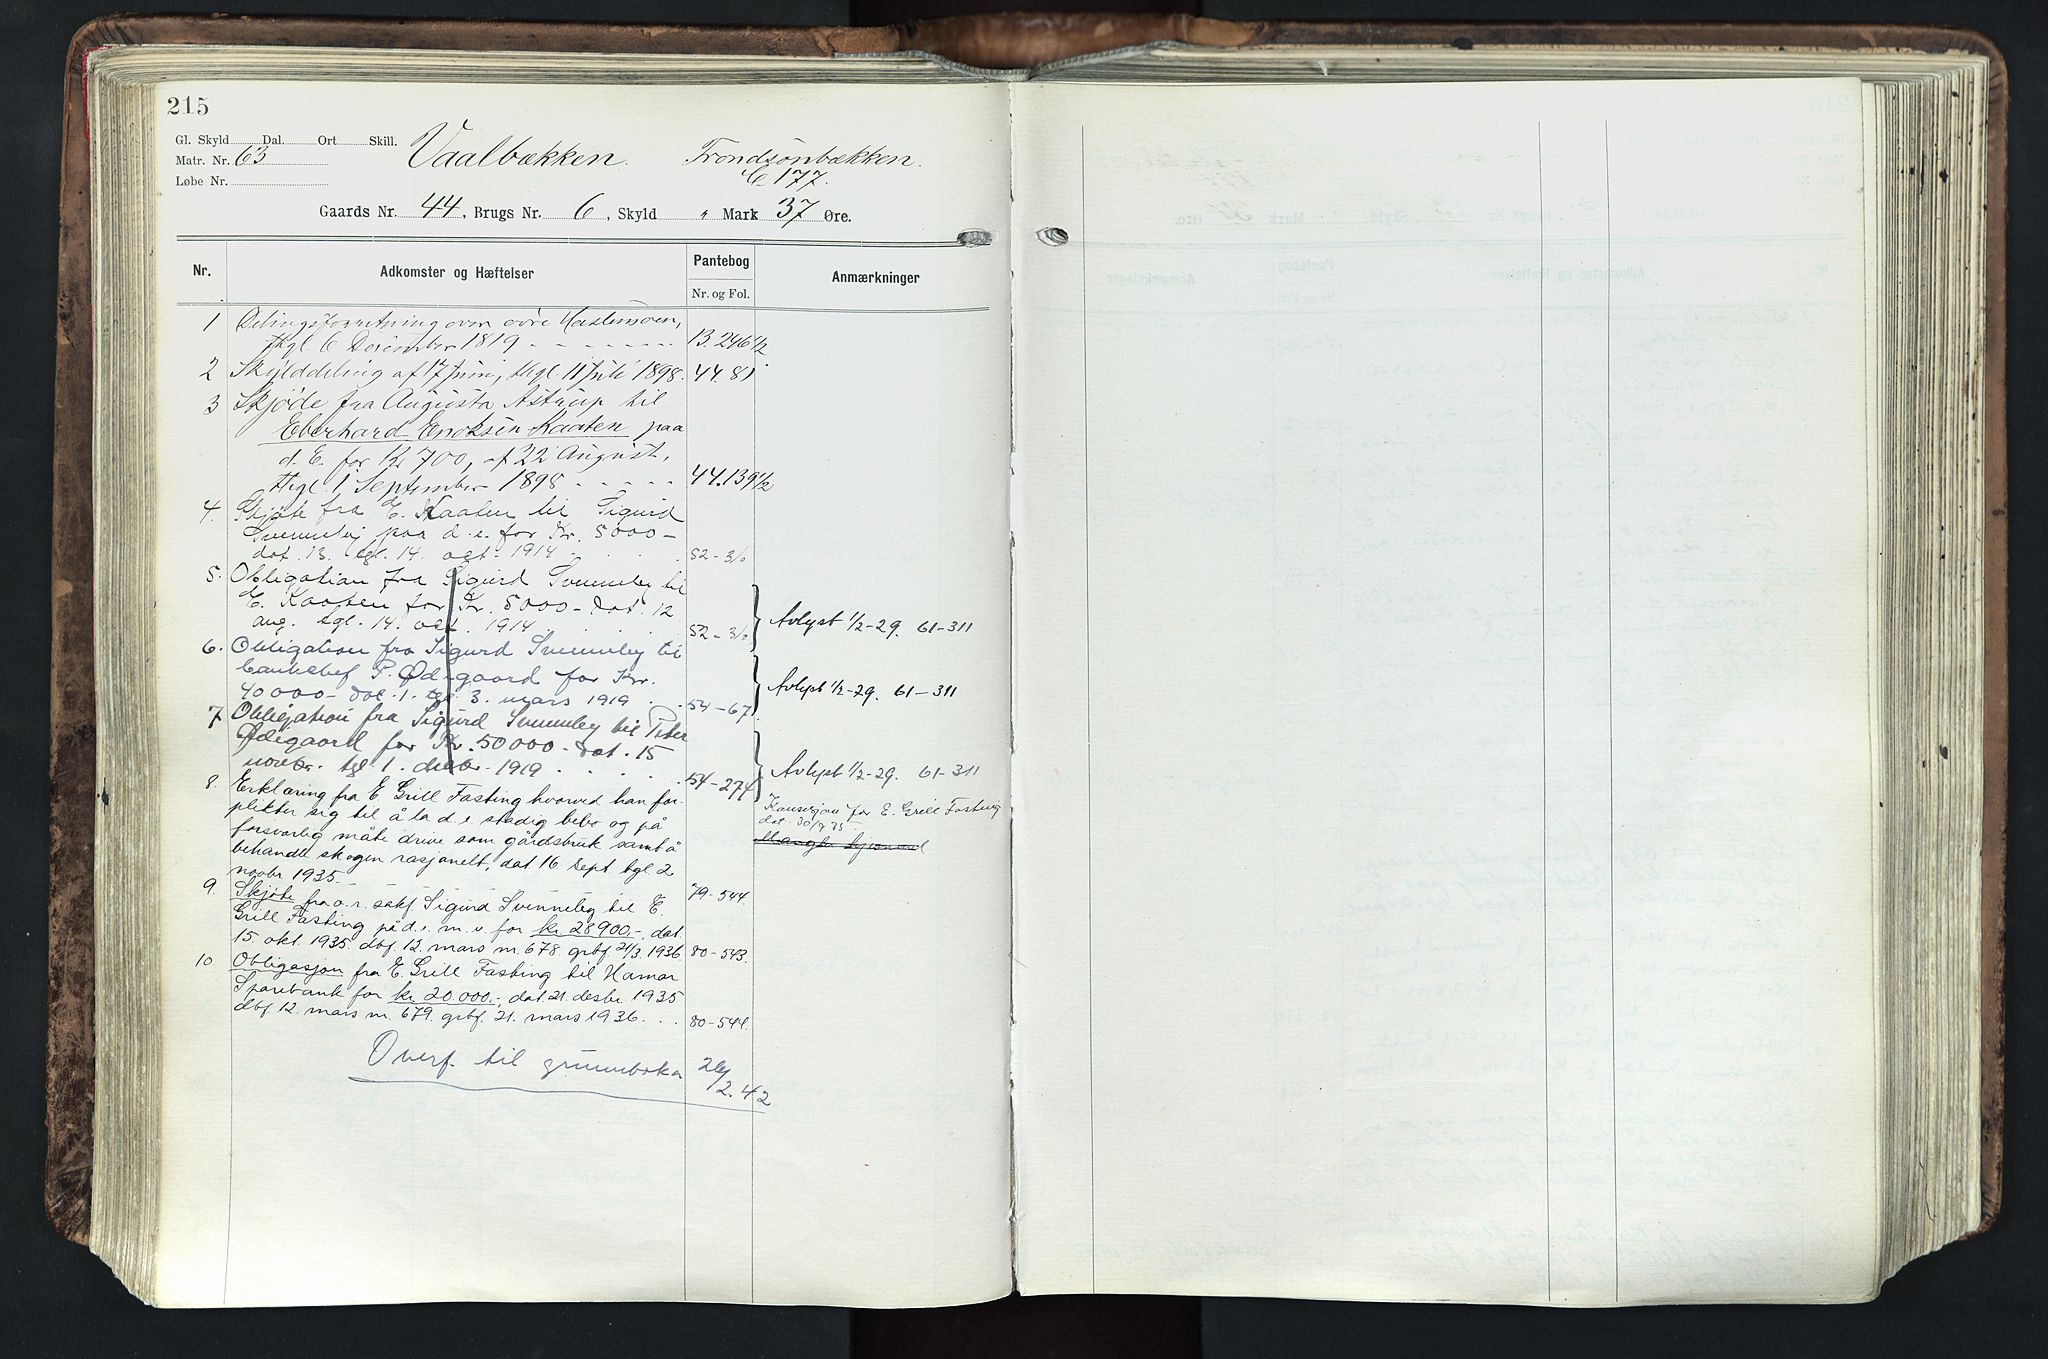 215
Gl. Skyld Dal. Ort Skill.
Matr. Nr. 63
Løbe Nr.
Vaalbækken. Trondsønbækken.
C 177.
Gaards Nr. 44, Brugs Nr. 6, Skyld " Mark 37 Øre.
Nr. Adkomster og Hæftelser Pantebog Anmærkninger
Nr. og Fol.
1 Delingsforretning over øvre
thgl. 6 December 1819 - - - - - - - 13. 246 1/2
2 Skylddeling af 17 Juni, thgl. 11 Juli 1898. 44. 81
3 Skjøde fra Augusta Astrup til
Eberhard Enoksen Kaaten paa
d. E. for Kr 700, af 22 August,
thgl. 1 September 1898 - - - - - 44. 139 1/2
4. Skjøte fra E. Kaaten til Sigurd
Svenneby paa d. e. for Kr. 5000 -
dat. 13. tgl. 14. okt. 1914 . . . 52 - 310
5. Obligation fra Sigurd Svenneby til
E. Kaaten for Kr. 5000 - dat. 12
aug. tgl. 14. okt. 1914 . . . 52 - 310
Avlyst 1/2 - 29. 61 - 311
6. Obligation fra Sigurd Svenneby til
banksjef P. Ødegaard for Kr.
40 000 - dat. 1. tgl. 3. mars 1919 . . 54 - 67
Avlyst 1/2 - 29. 61 - 311
7 Obligation fra Sigurd Svenneby til Peter
Ødegaard for Kr. 50 000 - dat. 15
novbr. tgl. 1. desbr. 1919 . . . . . 54 - 274
Avlyst 1/2 - 29. 61 - 311
8. Erklæring fra E. Grill Fasting hvorved han for-
plikter sig til å la d. e. stadig bebo og på
forsvarlig måte drive som gårdsbruk samt å
behandle skogen rasjonelt, dat 16 Sept tgl 2
novbr 1935 79 - 544
Konsesjon for E. Grill Fasting
dat. 30/7 35.
Mangler
9. Skjøte fra o. r. sakf. Sigurd Svenneby til E.
Grill Fasting på d. e. m. v. for kr 28900,-, dat.
15. okt. 1935. dbf. 12. mars nr. 678. grbf 21/3. 1936 80 - 543.
10 Obligasjon fra E. Grill Fasting til Hamar
Sparebank for kr 20.000,-, dat. 21. desbr 1935
dbf. 12. mars nr. 679. grbf. 21. mars 1936. . . 80 - 544.
Overf. til grunnboka 26/2. 42